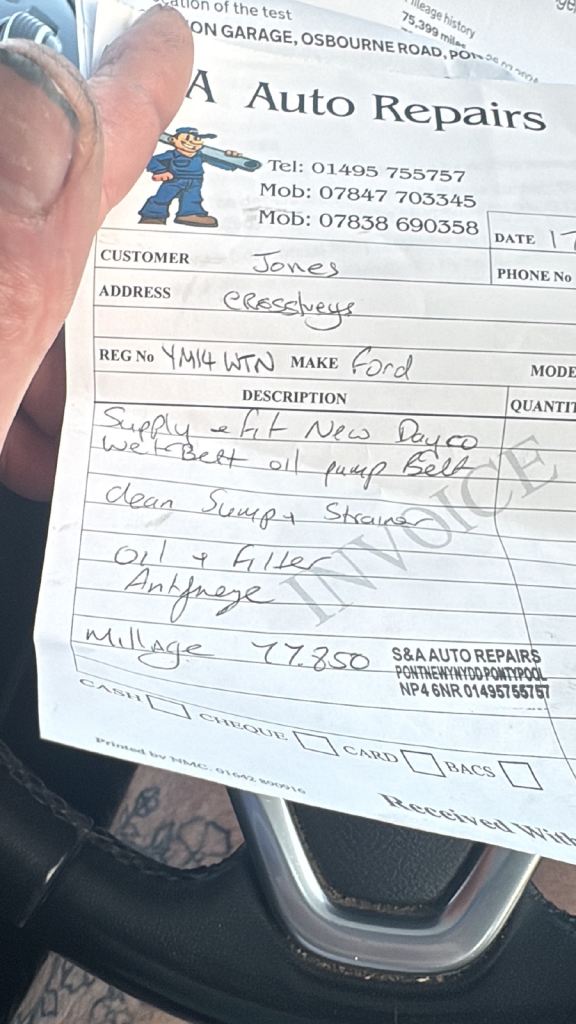 ation of the test
ON GARAGE, OSBOURNE ROAD,
ileage history
75,399 miles
A Auto Repairs
Tel: 01495 755757
Mob: 07847 703345
Mob: 07838 690358
DATE 17
CUSTOMER Jones
PHONE No
ADDRESS CROSSkeys
REG No YM14 WTN MAKE Ford
MODE
DESCRIPTION
QUANTIT
Supply & fit New Dayco
Wet Belt oil pump Belt
clean Sump + Strainer
Oil + Filter
Antifreeze
INVOICE
Millage 77.850
S&A AUTO REPAIRS
PONTNEWYNYDD PONTYPOOL
NP4 6NR 01495755757
CASH CHEQUE CARD BACS
Printed by NMC. 01642 800916
Received With